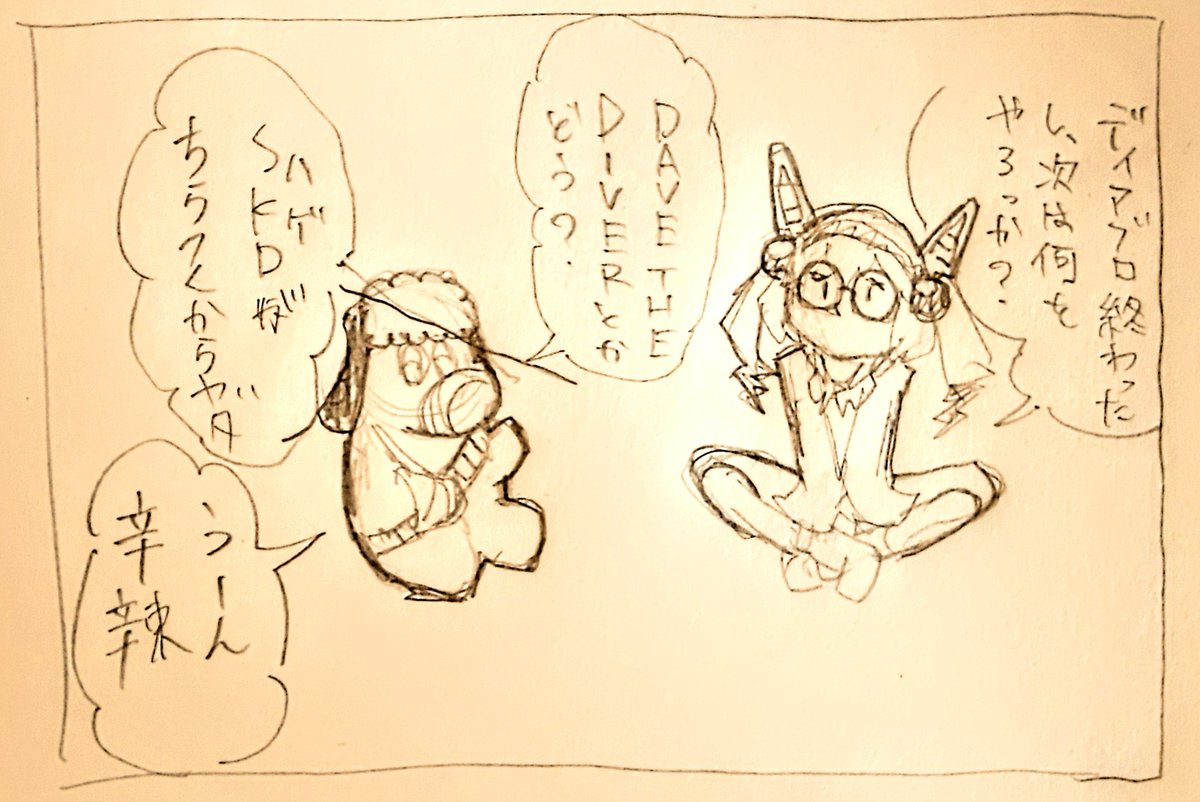 ディアブロ終わった
し、次は何を
やろっか?
DAVE THE
DIVERとか
どう?
ハゲ
SKDが
ちらつくからヤダ
うーん
辛辣